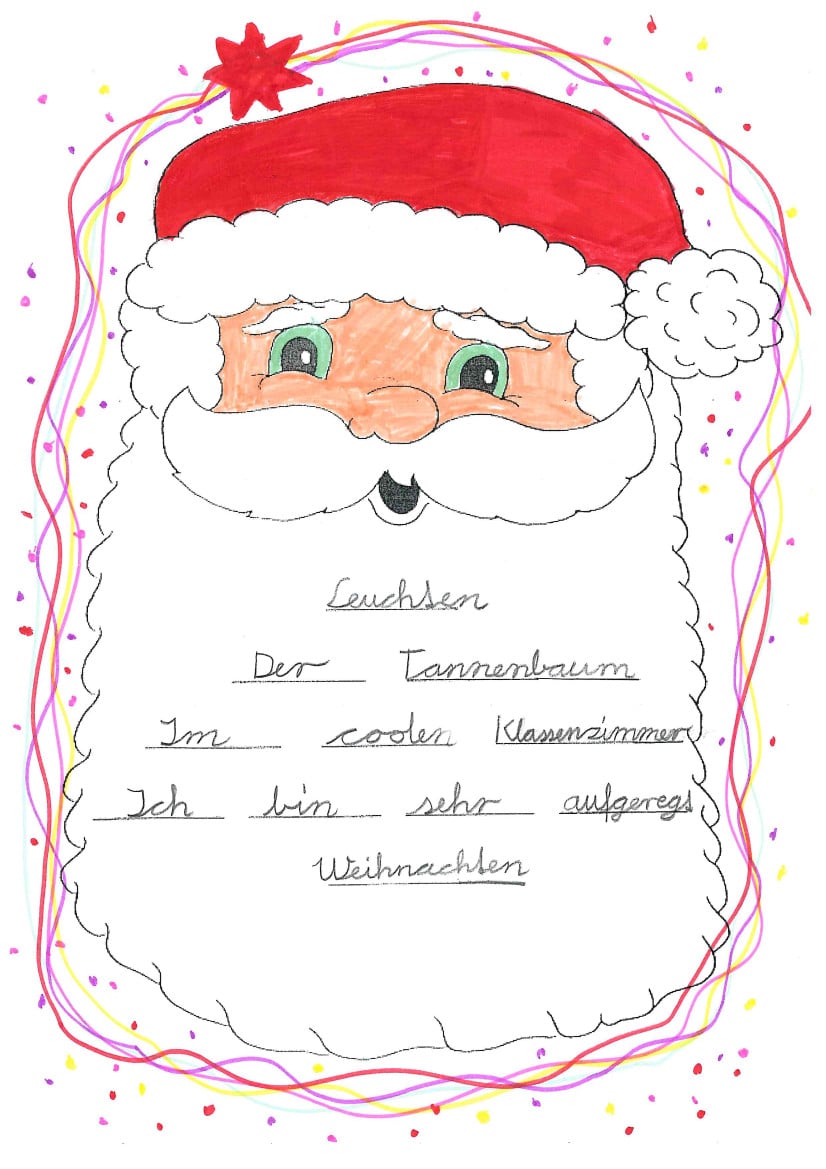 Leuchten
Der Tannenbaum
Im coolen Klassenzimmer
Ich bin sehr aufgeregt
Weihnachten